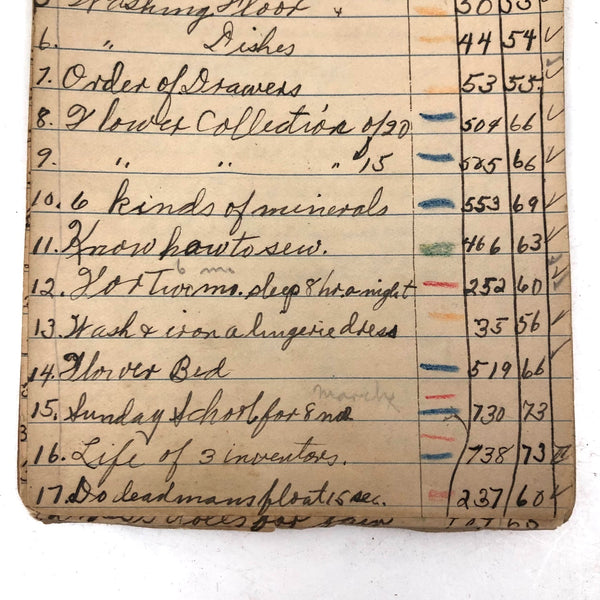 5 Washing Floor " 50 55
6. " Dishes 44 54 ✓
7. Order of Drawers 53 55. ✓
8. Flower Collection of 20 504 66 ✓
9. " " " 15 505 66 ✓
10. 6 kinds of minerals 553 69 ✓
11. Know how to sew. 466 63 ✓
6 mo
12. For Two mo. sleep 8 hr. a night 252 60 ✓
13. Wash & iron a lingerie dress 35 56 ✓
14. Flower Bed 519 66 ✓
march
15. Sunday School for 8 mo. 730 73
16. Life of 3 inventors. 738 73
17. Do dead mans float 15 sec. 237 60 ✓